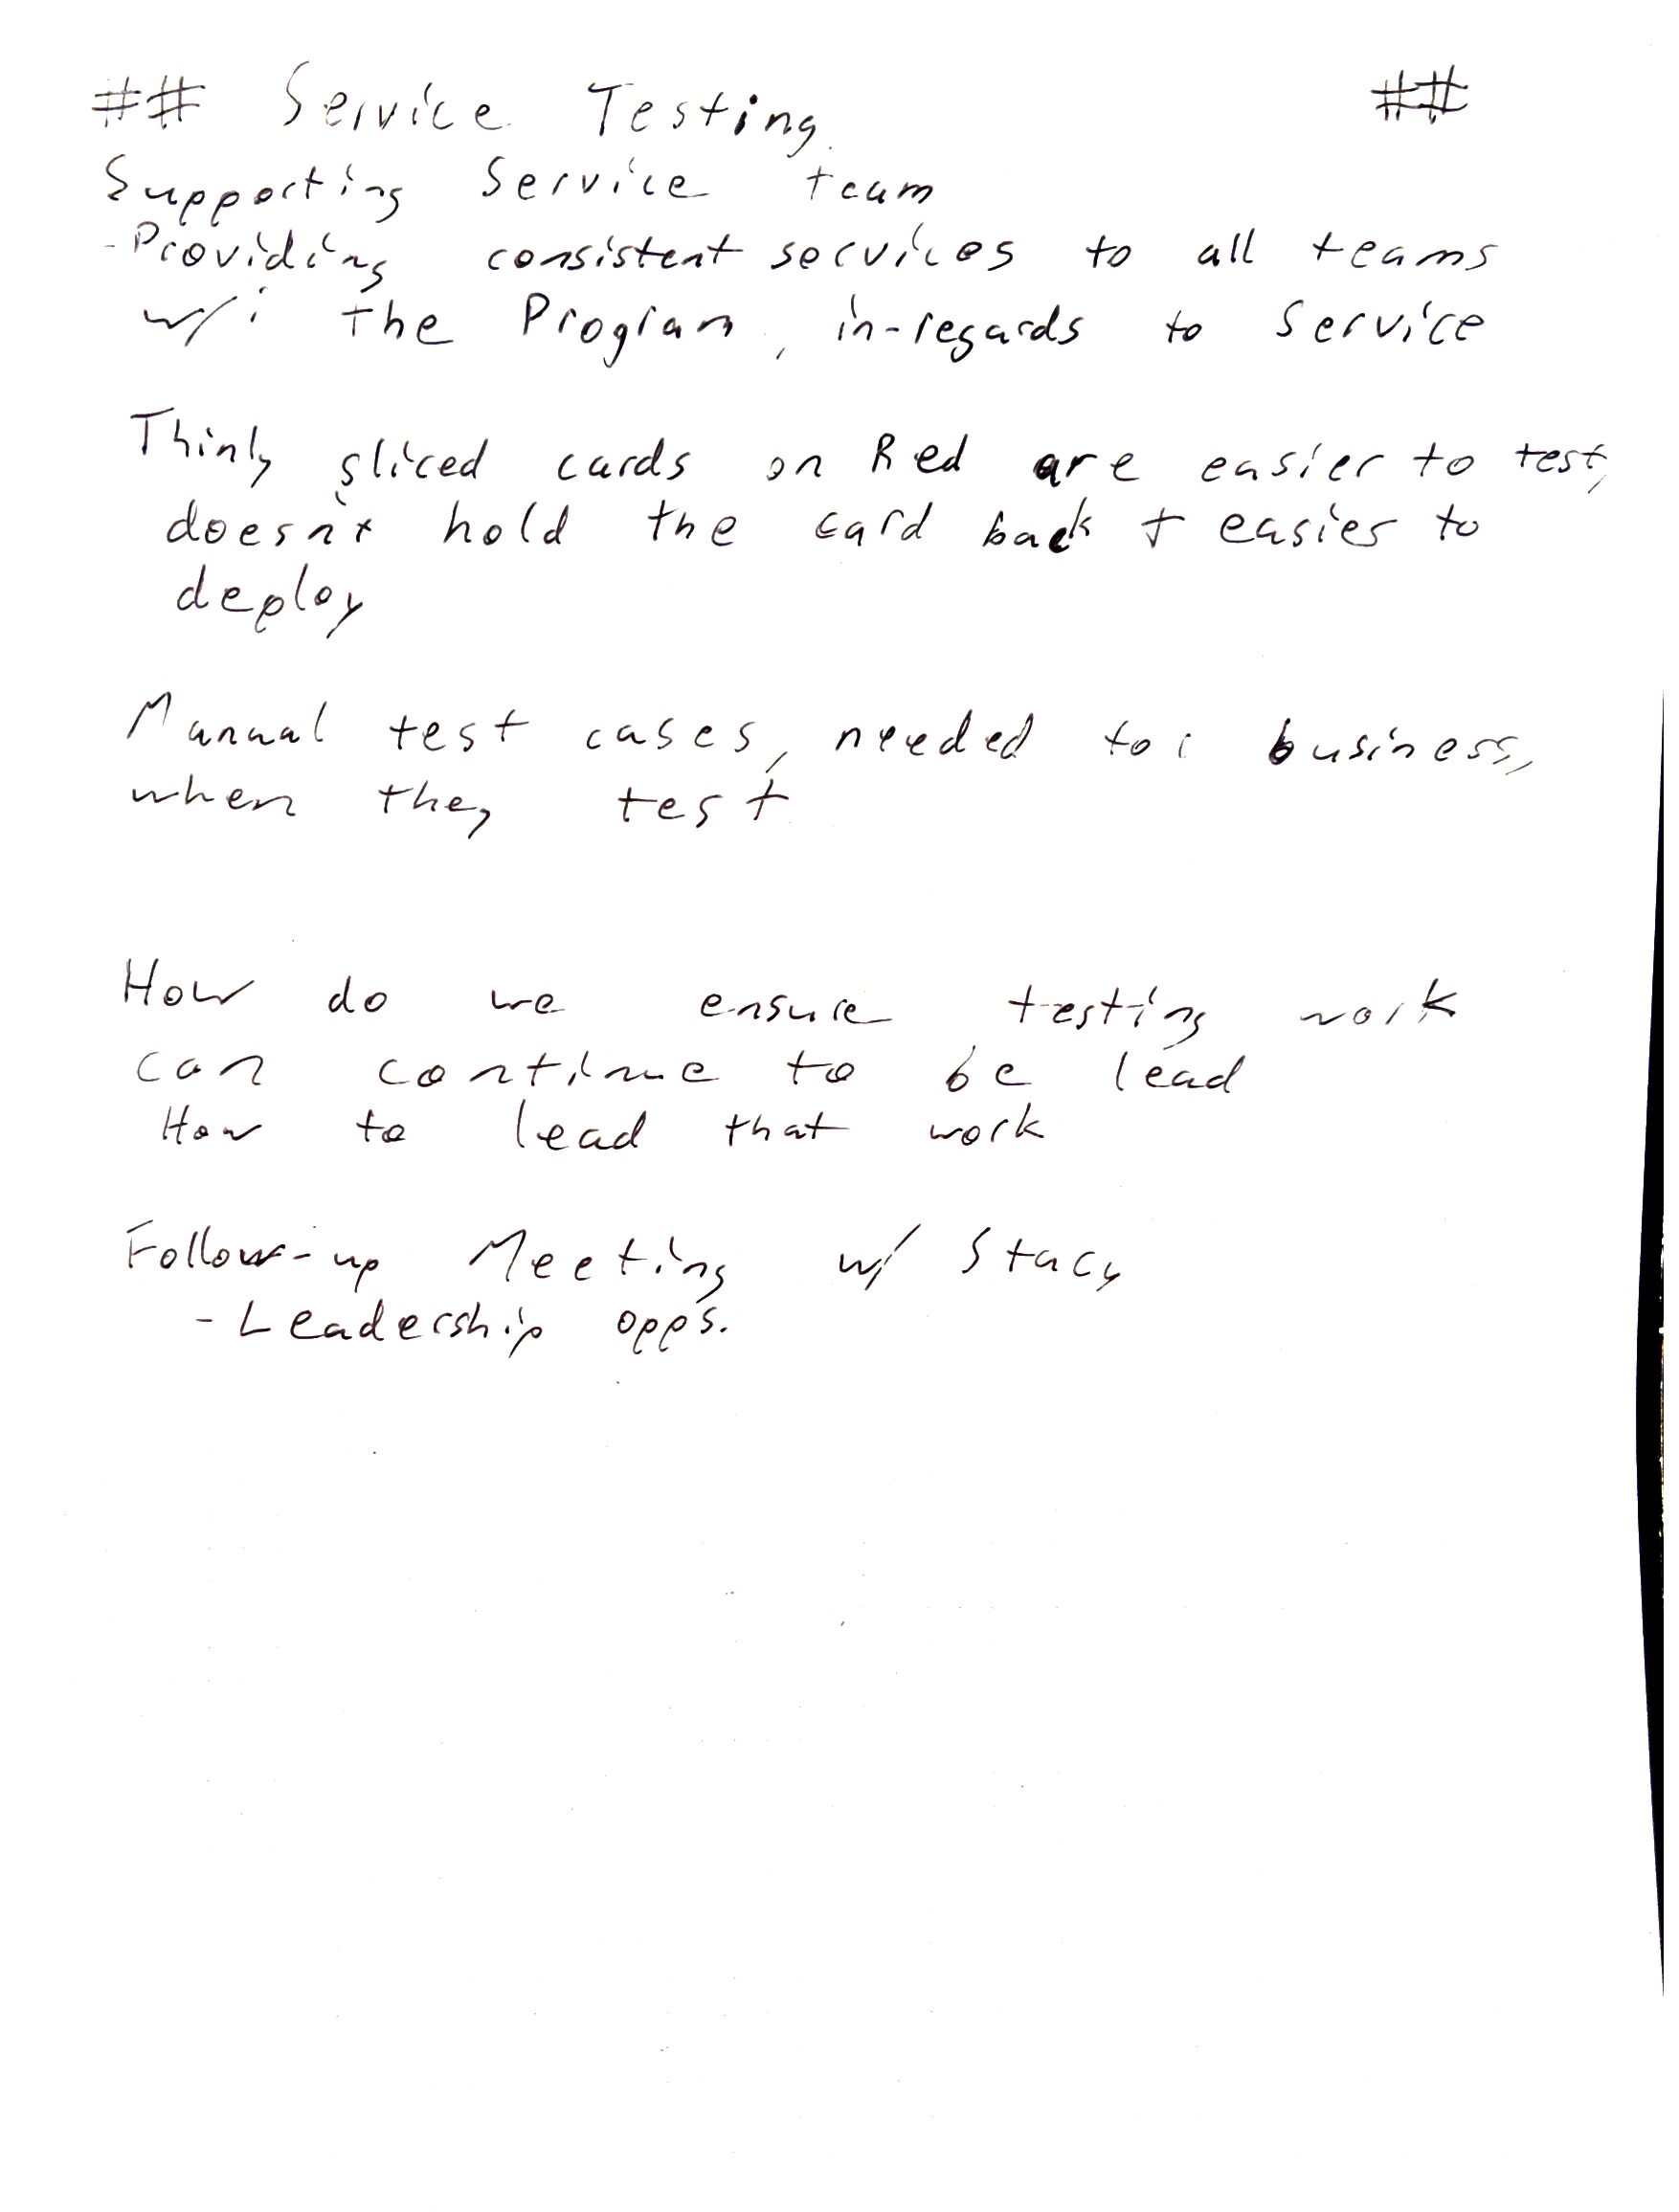 ## Service Testing ##
Supporting Service team
-Providing consistent services to all teams
w/i the Program, in-regards to service
Thinly sliced cards on Red are easier to test,
doesn't hold the card back + easier to
deploy
Manual test cases, needed for business,
when they test
How do we ensure testing work
can continue to be lead
How to lead that work
Follow-up Meeting w/ Stacy
- Leadership opps.